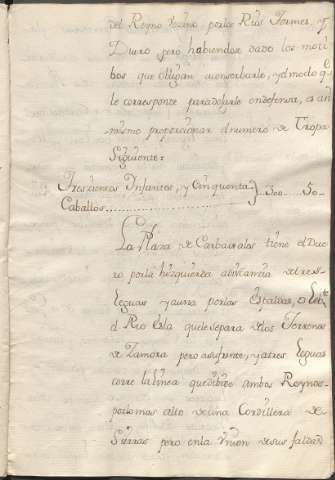 del Reyno vecino por los Rios Tormes, y
Duero, pero habiendose dado los moti-
bos que obligan aconserbarle, y el modo qe
le corresponde para dejarle en defensa, a an
mismo proporcionar el numero de Tropa
Siguiente:
Trescientos Infantes, y Cinquenta
Caballos } 300 50
La Plaza de Carbajales tiene el Due-
ro por la hizquierda a distancia de tres
Leguas y aun a por las Espaldas, o
el Rio Esla que le separa de los Terrenos
de Zamora pero a su frente, y a tres Leguas
corre la linea que divide ambos Reynos
por lo mas alto de una Cordillera de
Sierras pero en la Union de sus faldas